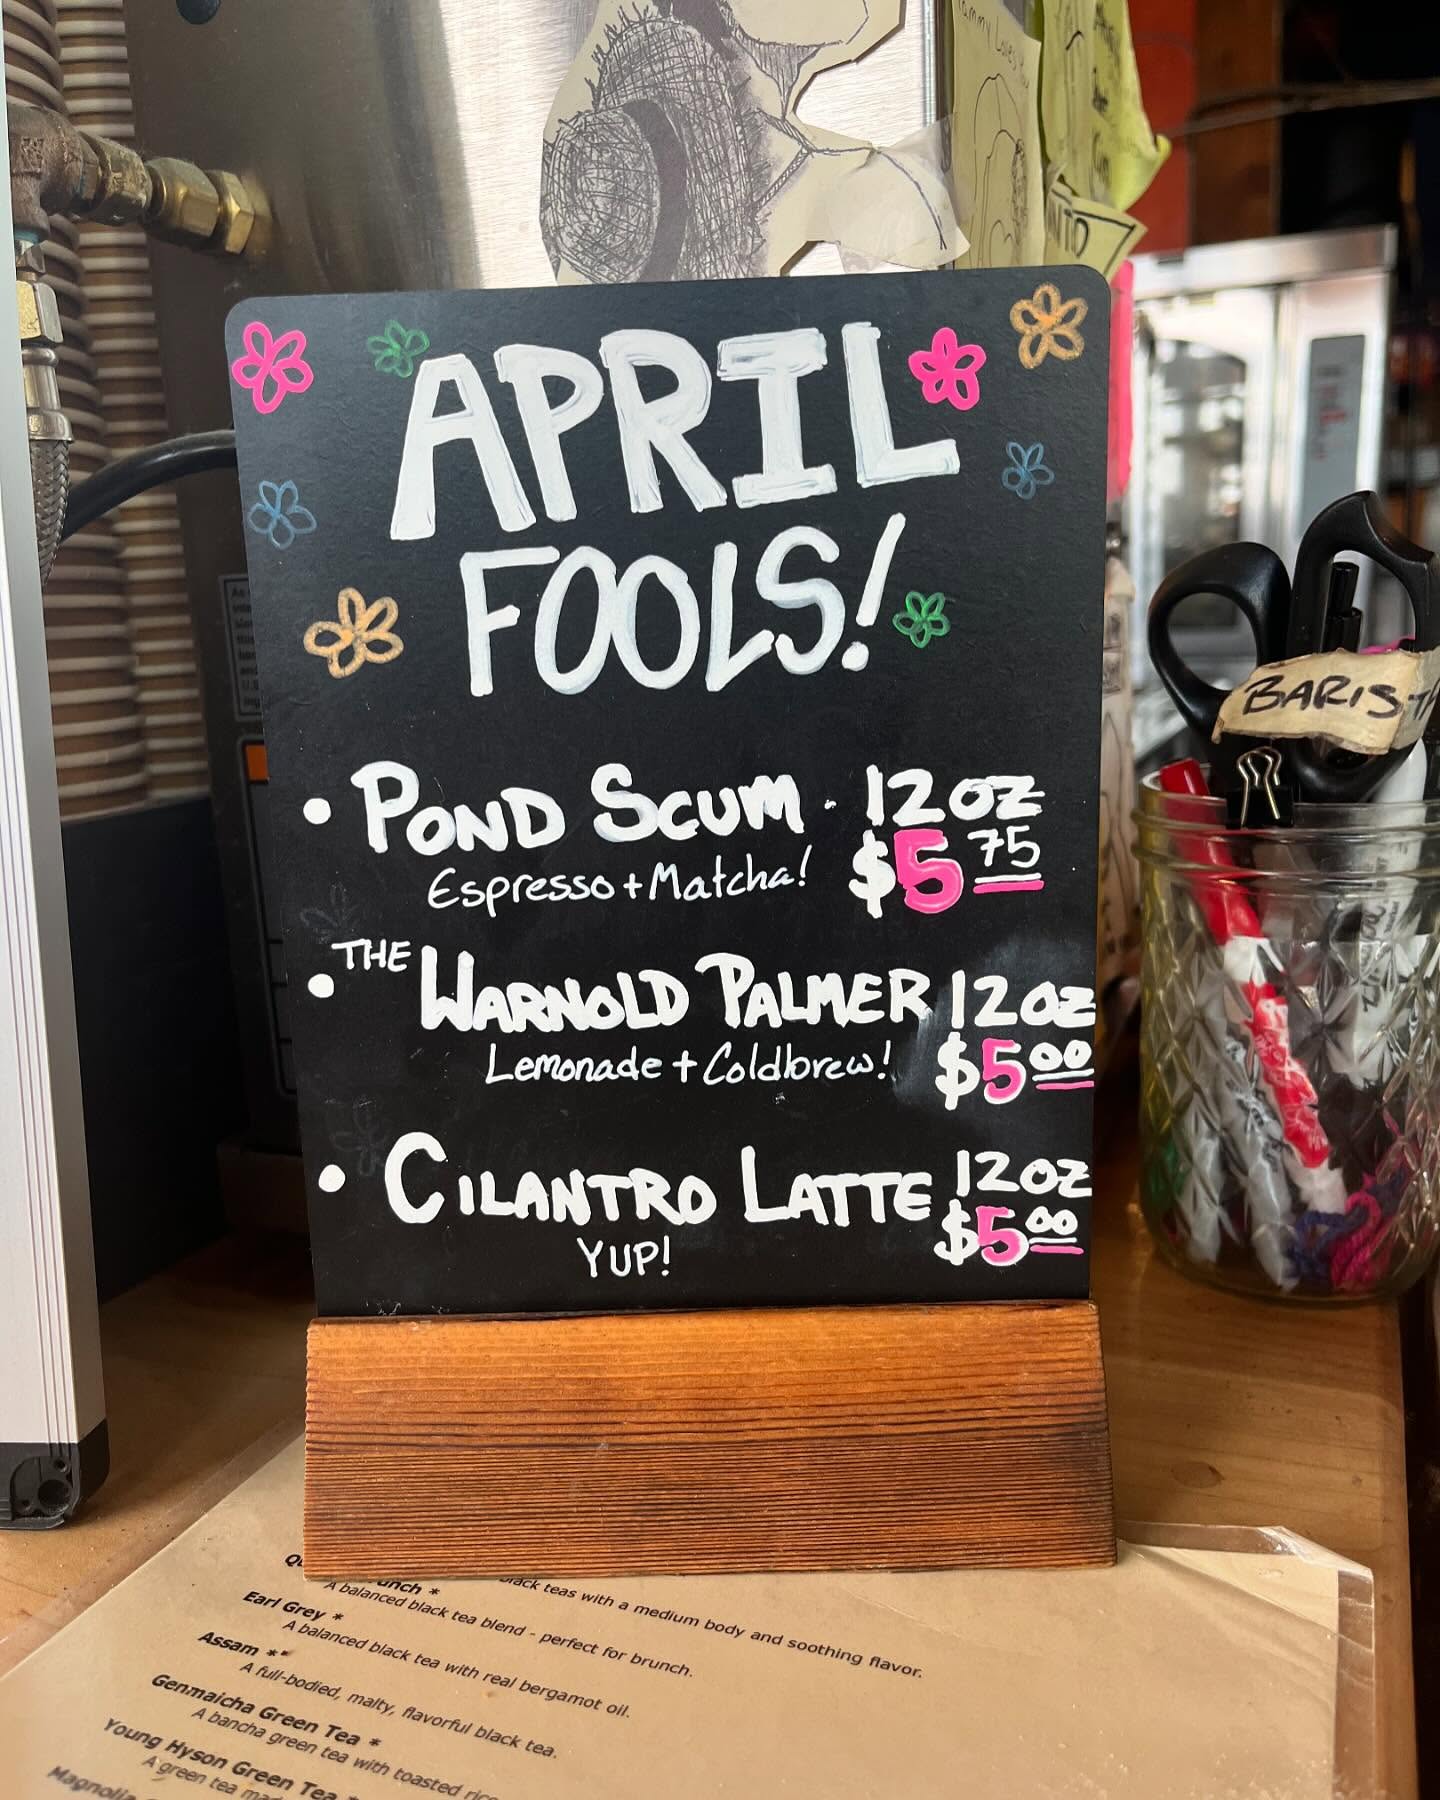 Tammy Loves You
APRIL
FOOLS!
• POND SCUM · 12oz
Espresso + Matcha! $5 75
• THE WARNOLD PALMER 12oz
Lemonade + Coldbrew! $5 00
• CILANTRO LATTE 12oz
YUP! $5 00
BARISTA
black teas with a medium body and soothing flavor.
A balanced black tea blend - perfect for brunch.
Earl Grey *
A balanced black tea with real bergamot oil.
Assam **
A full-bodied, malty, flavorful black tea.
Genmaicha Green Tea *
A bancha green tea with toasted
Young Hyson Green Tea *
A green tea
Magnolia